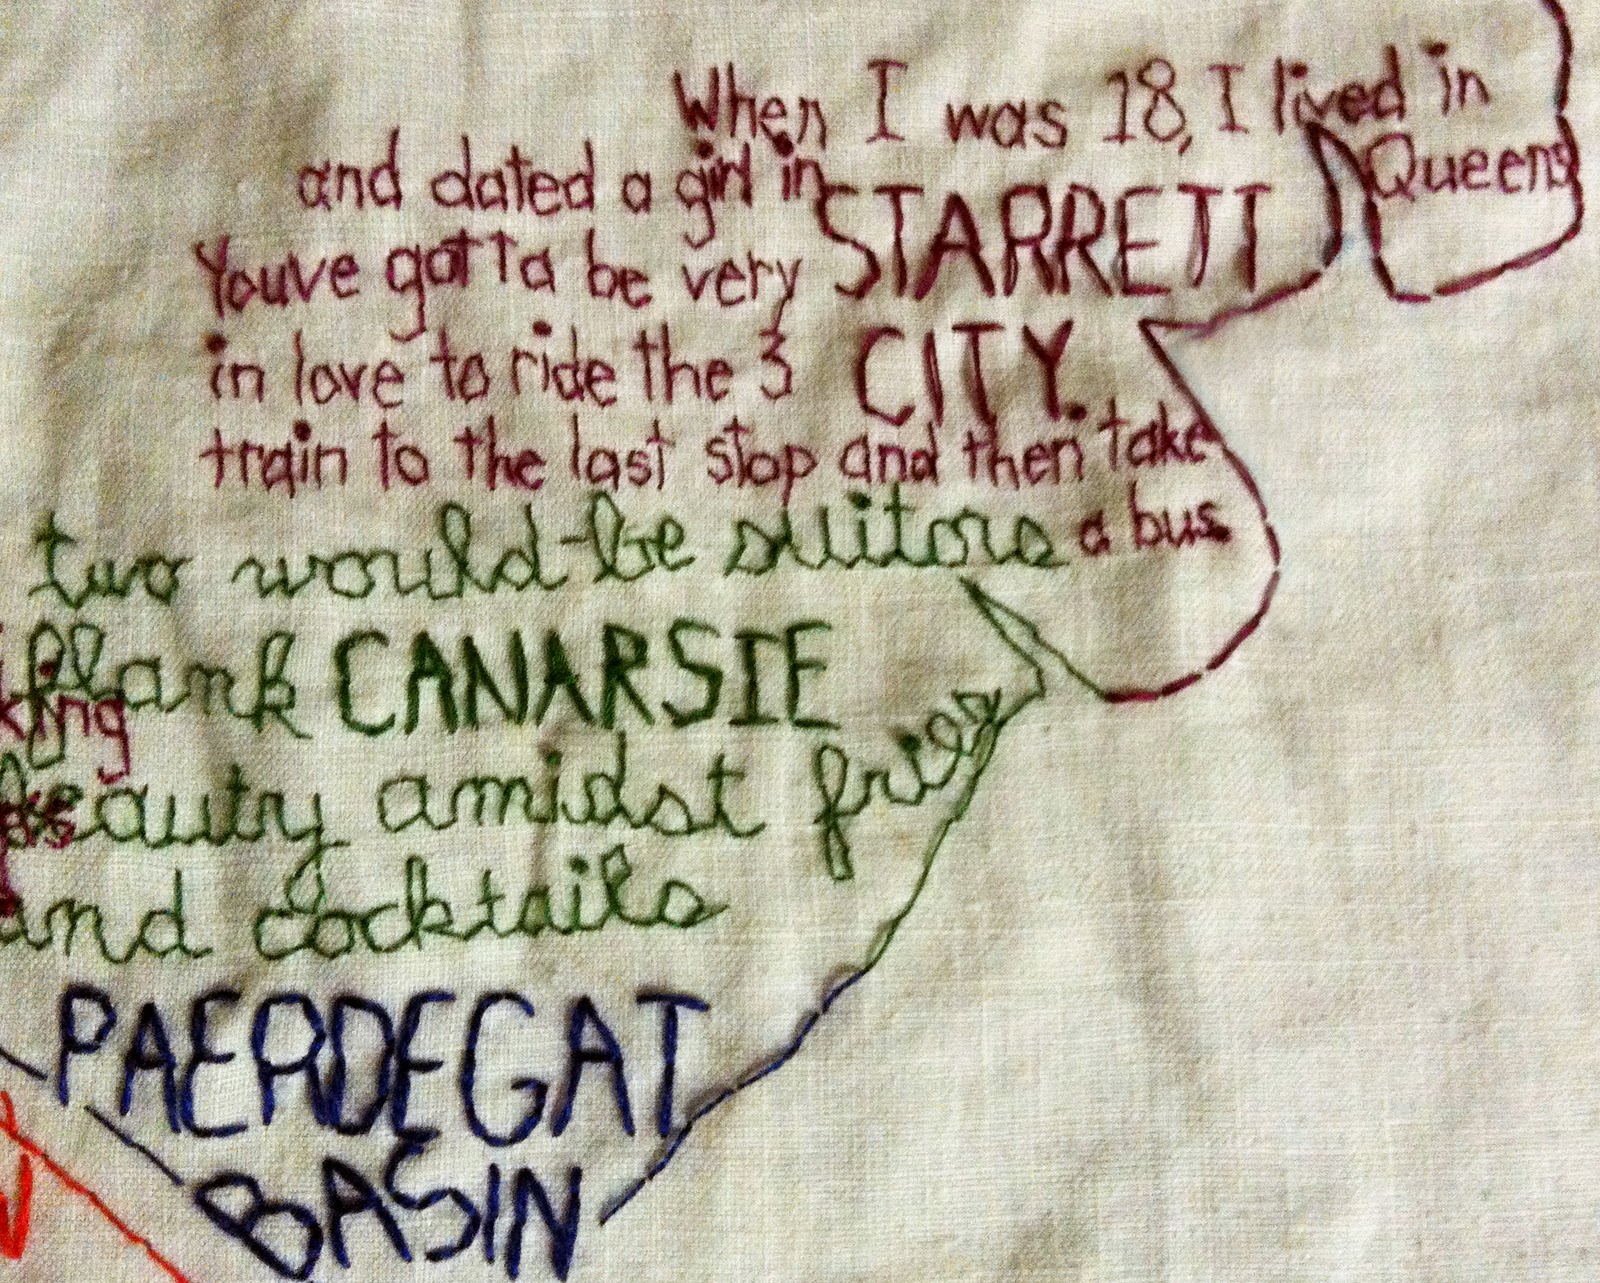 When I was 18, I lived in
Queens
and dated a girl in
STARRETT
CITY.
Youve gotta be very
in love to ride the 3
train to the last stop and then take
a bus
two would-be suitors
flank CANARSIE
beauty amidst fries
and cocktails
PAERDEGAT
BASIN